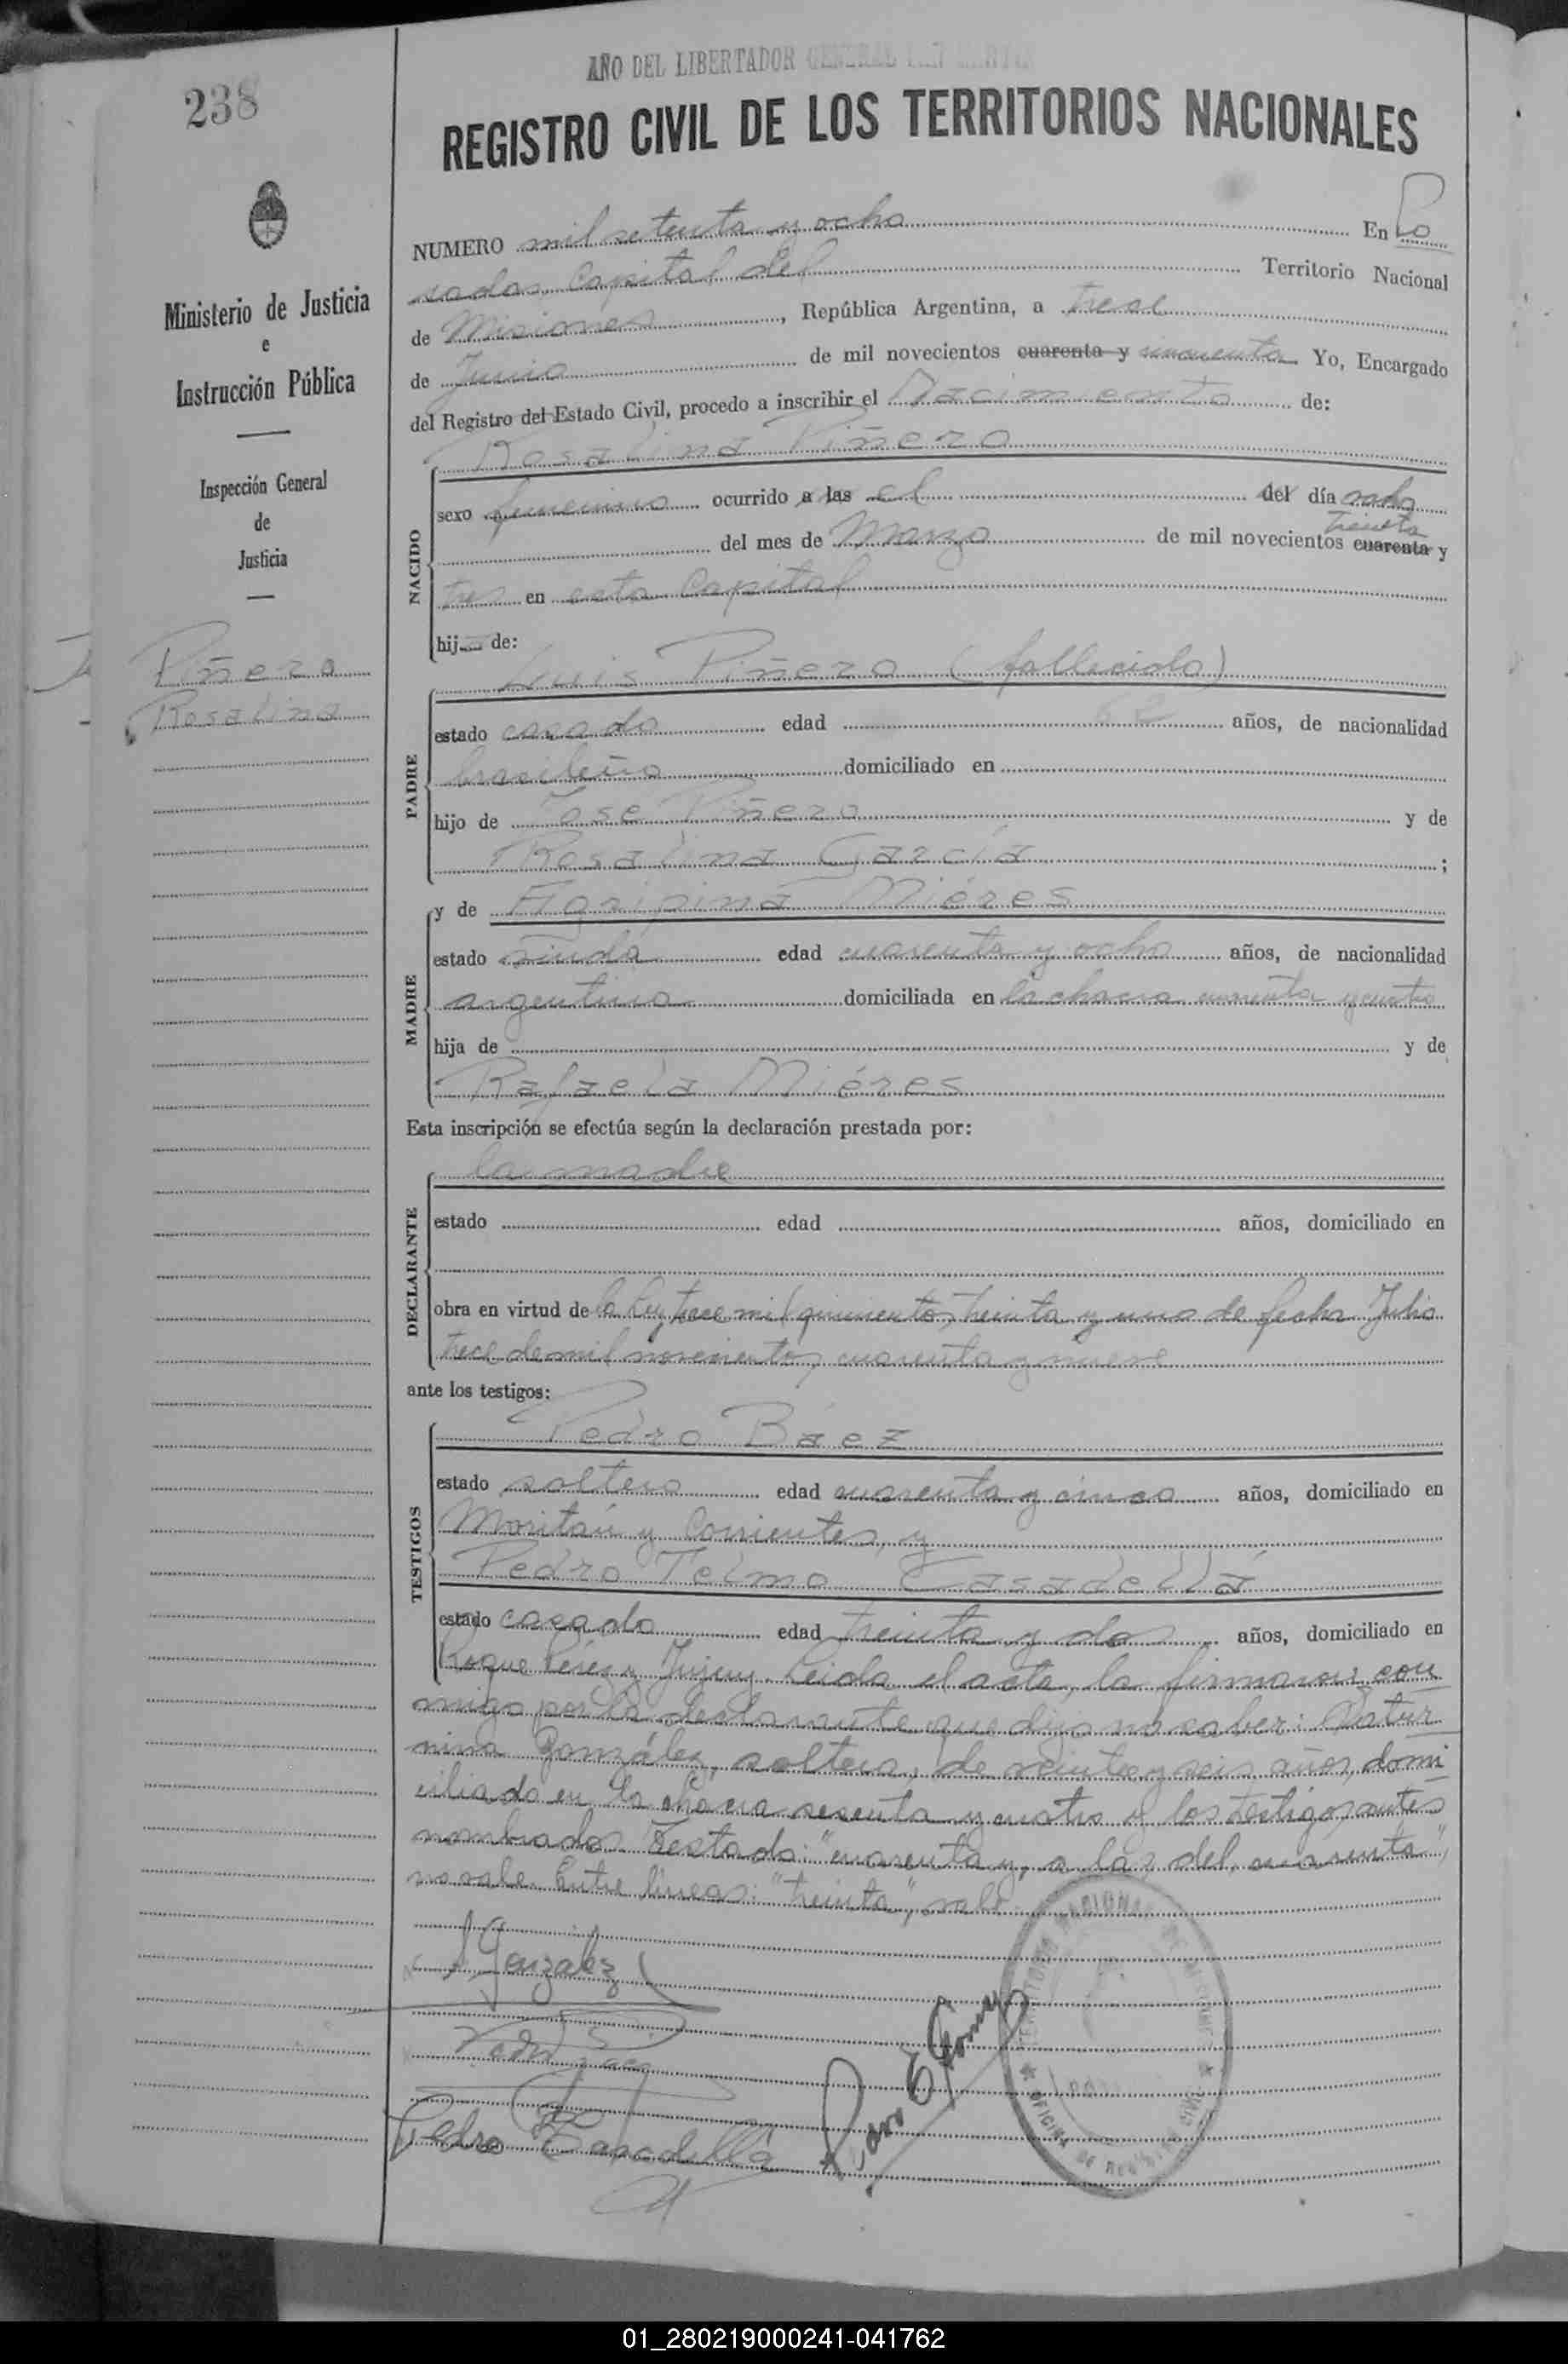 AÑO DEL LIBERTADOR GENERAL SAN MARTIN
238
REGISTRO CIVIL DE LOS TERRITORIOS NACIONALES
Ministerio de Justicia
e
Instrucción Pública
Inspección General
de
Justicia
Piñero
Rosalina
NUMERO mil setenta y ocho En Po
sadas Capital del Territorio Nacional
de Misiones, República Argentina, a trece
de Junio de mil novecientos cuarenta y cincuenta Yo, Encargado
del Registro del Estado Civil, procedo a inscribir el Nacimiento de:
Rosalina Piñero
NACIDO
sexo femenino ocurrido a las el del día ocho
treinta
del mes de Marzo de mil novecientos cuarenta y
tres en esta Capital
hij de:
Luis Piñero (fallecido)
PADRE
estado casado edad años, de nacionalidad
brasileño domiciliado en
hijo de Jose Piñero y de
Rosalina García;
MADRE
y de Agripina Miéres
estado viuda edad cuarenta y ocho años, de nacionalidad
argentina domiciliada en la chacra y cuatro
hija de y de
Rafaela Miéres
Esta inscripción se efectúa según la declaración prestada por:
la madre
DECLARANTE
estado edad años, domiciliado en
obra en virtud de la Ley trece mil quinientos treinta y uno de fecha Julio
trece de mil novecientos cuarenta y nueve
ante los testigos:
Pedro Báez
TESTIGOS
estado soltero edad cuarenta y cinco años, domiciliado en
Moritán y Corrientes, y
Pedro Telmo Casadellá
estado casado edad treinta y dos años, domiciliado en
Roque Pérez y Jujuy. Leida el acta, la firmaron con
migo por la declarante que dijo no saber: Satur
nina González, soltera, de veinte y seis años, domi
ciliada en la chacra sesenta y cuatro y los testigos antes
nombrados. Testado: "cuarenta y, a las, del, cuarenta",
no vale. Entre líneas: "treinta", vale
S Gonzalez
Pedro Baez
Pedro T Casadellá
OFICINA DE REGISTRO CIVIL
01_280219000241-041762